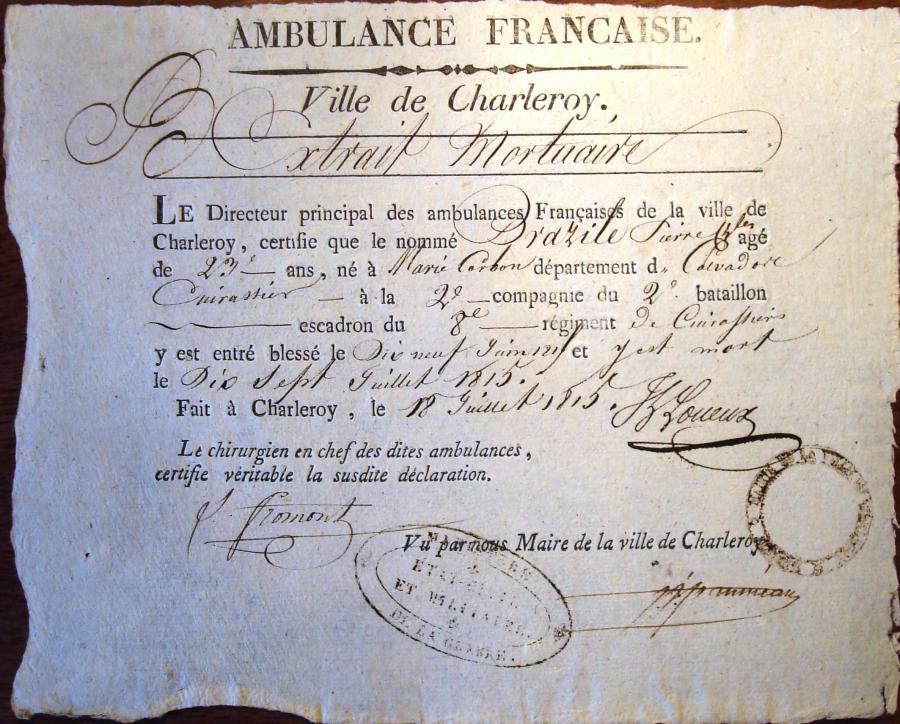 AMBULANCE FRANCAISE.
Ville de Charleroy.
Extrait Mortuaire
LE Directeur principal des ambulances Françaises de la ville de
Charleroy, certifie que le nommé Drazile Pierre agé
de 23 ans, né à Marie Corbon département d
Cuirassier à la 2e compagnie du 2e bataillon
escadron du 8e régiment de Cuirassiers
y est entré blessé le Dix neuf Juin et y est mort
le Dix Sept Juillet 1815.
Fait à Charleroy, le 18 Juillet 1815.
Le chirurgien en chef des dites ambulances,
certifie véritable la susdite déclaration.
Fromont
Vu par nous Maire de la ville de Charleroy
ET MILITAIRE.
DE LA GUERRE.